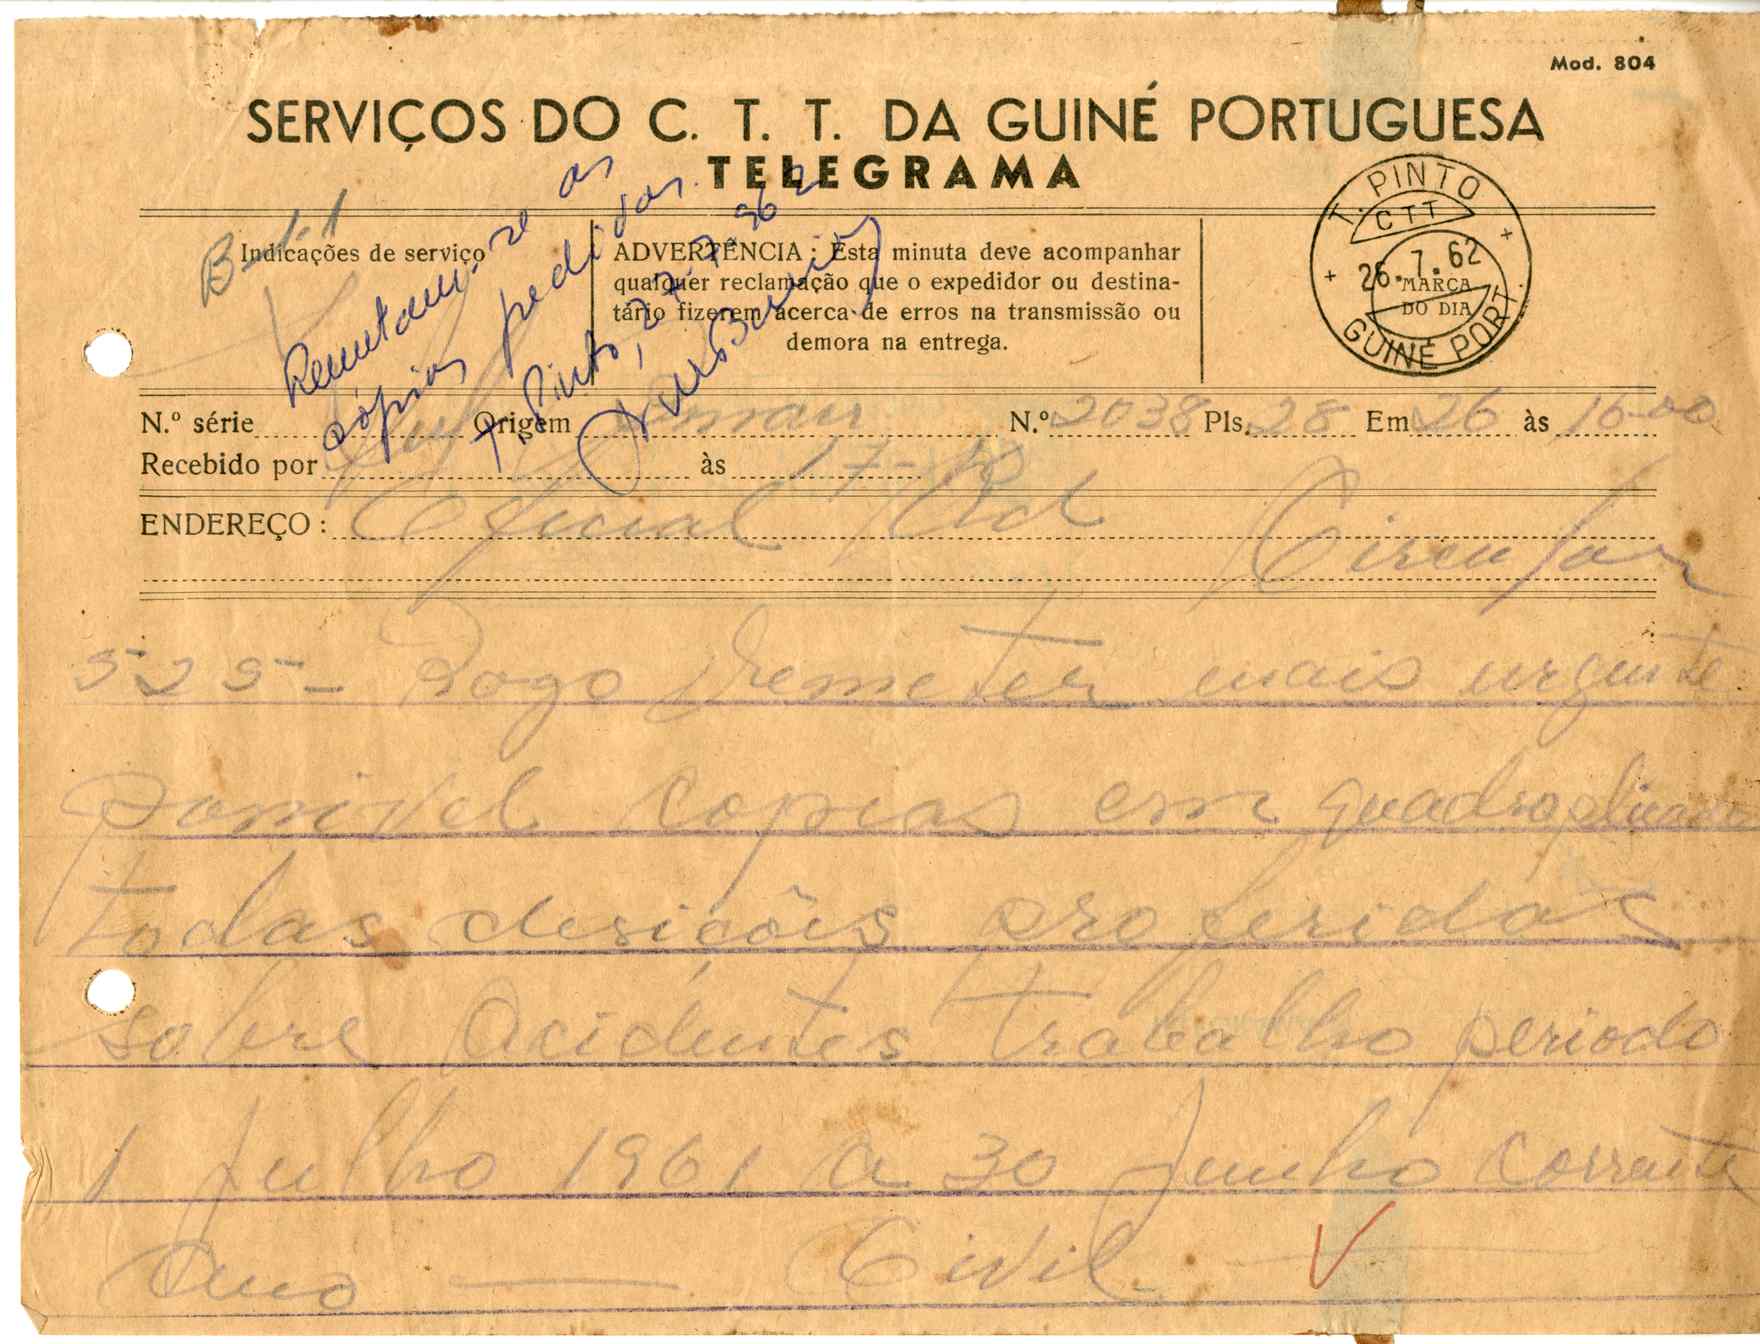 Mod. 804
SERVIÇOS DO C. T. T. DA GUINÉ PORTUGUESA
TELEGRAMA
Indicações de serviço
Remetam-se as
cópias pedidas.
T. Pinto, 27-7-962
ADVERTÊNCIA : Esta minuta deve acompanhar
qualquer reclamação que o expedidor ou destina-
tário fizerem acerca de erros na transmissão ou
demora na entrega.
T. PINTO
CTT
26.7.62
MARCA
DO DIA
GUINÉ PORT.
N.º série Origem Bissau N.º 2038 Pls. 28 Em 26 às 16-00
Recebido por às 17-10
ENDEREÇO: Oficial Ad
Circular
525 - Rogo remeter mais urgente
ponivel copias em quadroplicado
todas desições proferidas
sobre Acidentes trabalho periodo
1 Julho 1961 a 30 Junho corrente
Ano — Civil —